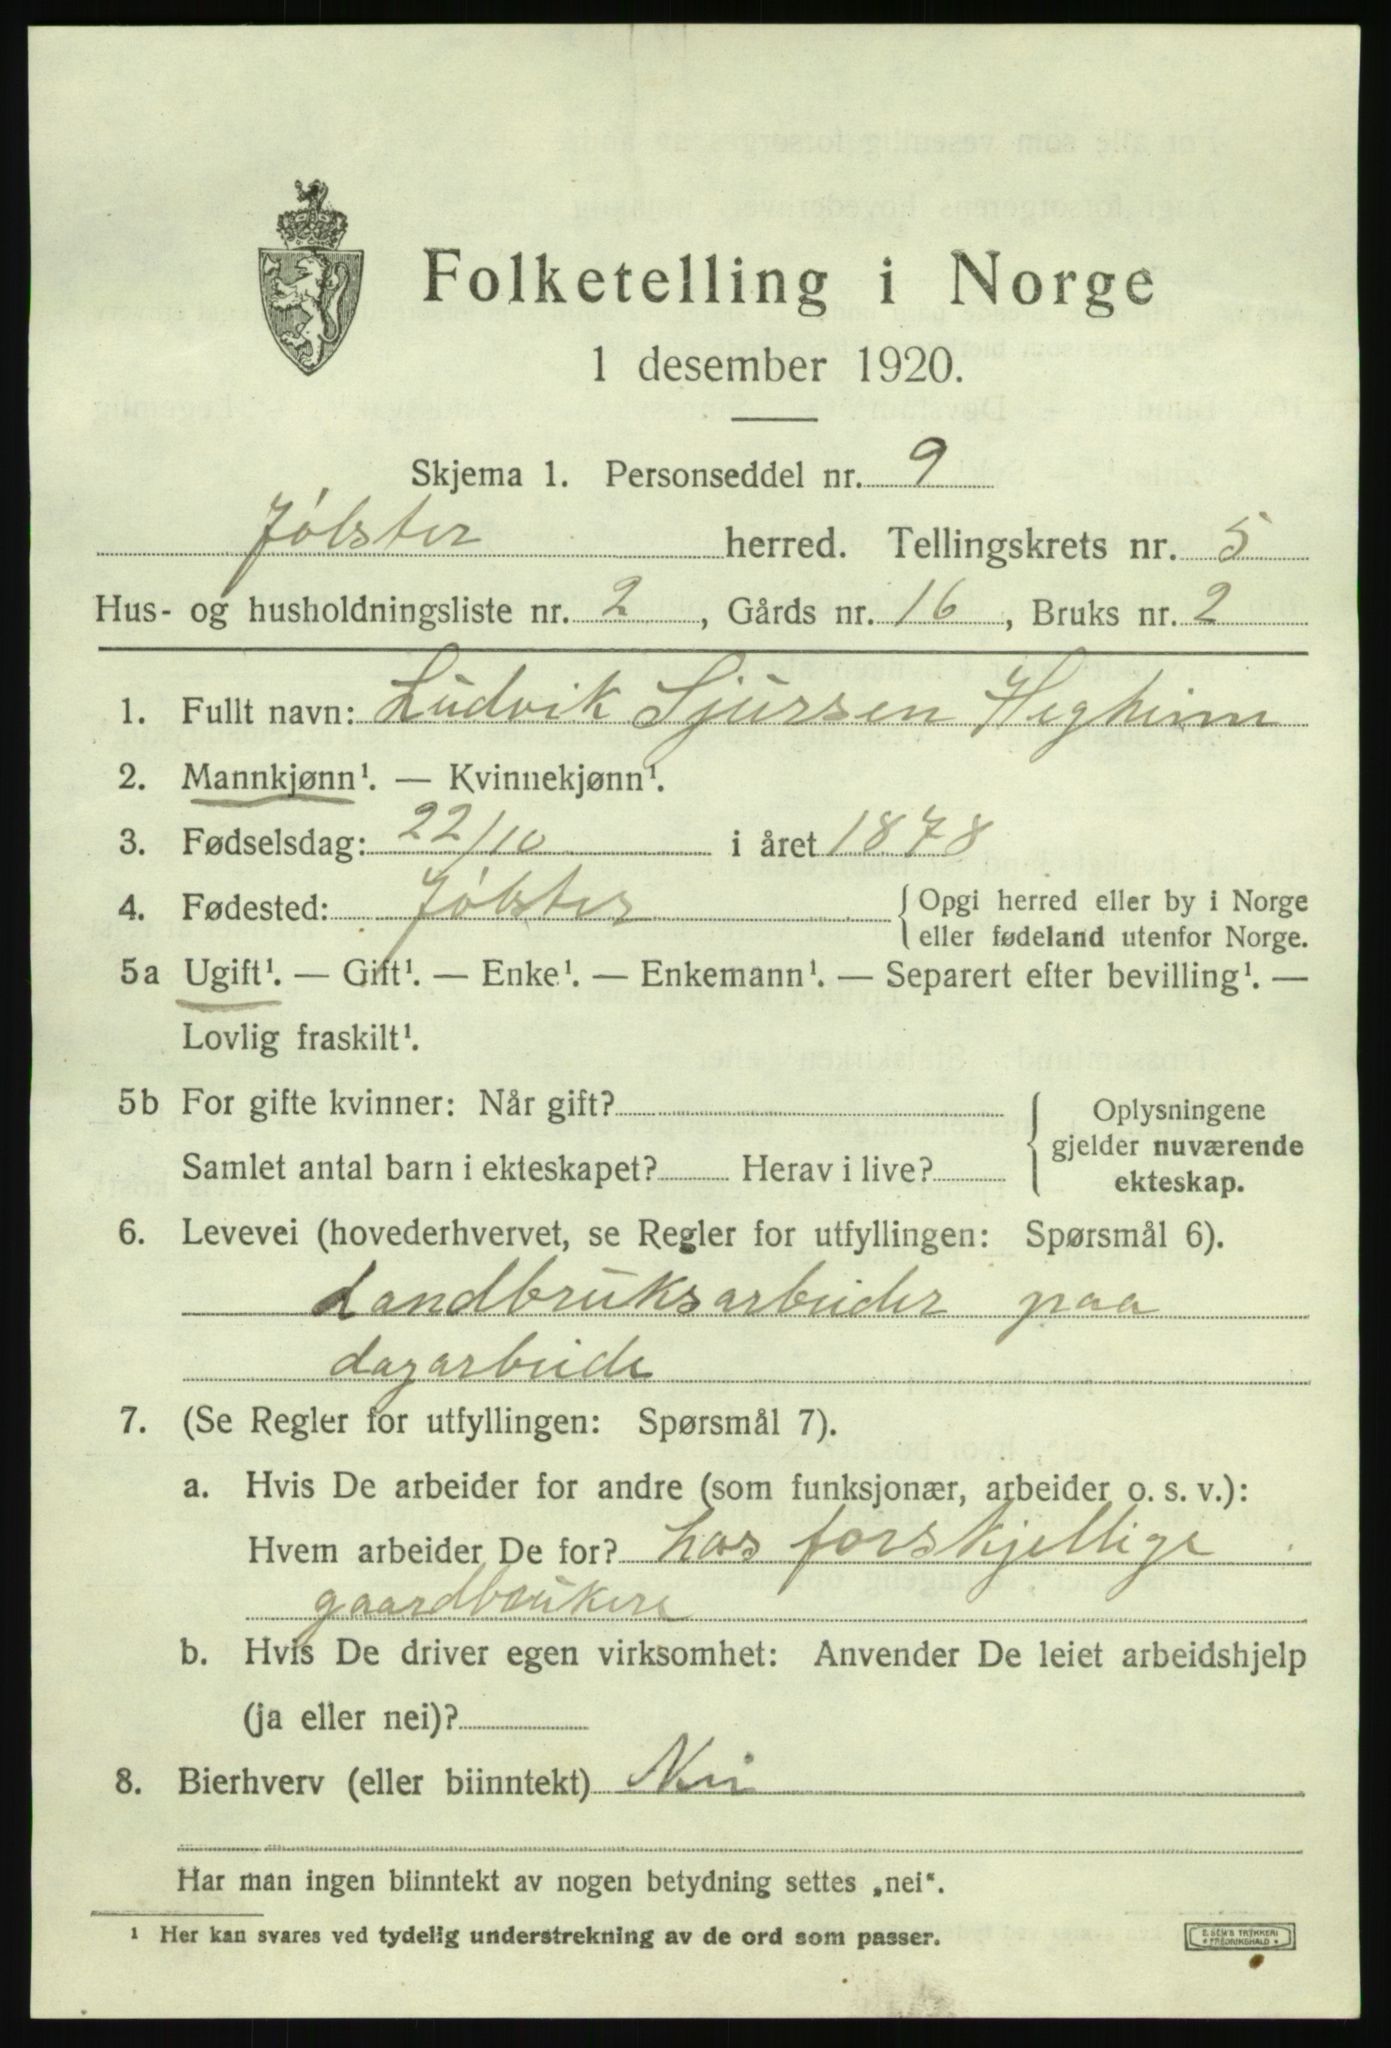 Folketelling i Norge
1 desember 1920.
Skjema 1. Personseddel nr. 9
Jølster herred. Tellingskrets nr. 5
Hus- og husholdningsliste nr. 2, Gårds nr. 16, Bruks nr. 2
1. Fullt navn: Ludvik Sjursen Hegheim
2. Mannkjønn¹. — Kvinnekjønn¹.
3. Fødselsdag: 22/10 i året 1878
4. Fødested: Jølster { Opgi herred eller by i Norge
eller fødeland utenfor Norge.
5a Ugift¹. — Gift¹. — Enke¹. — Enkemann¹. — Separert efter bevilling¹. —
Lovlig fraskilt¹.
5b For gifte kvinner: Når gift? { Oplysningene
gjelder nuværende
Samlet antal barn i ekteskapet? Herav i live? ekteskap.
6. Levevei (hovederhvervet, se Regler for utfyllingen: Spørsmål 6).
Landbruksarbeider paa
dagarbeide
7. (Se Regler for utfyllingen: Spørsmål 7).
a. Hvis De arbeider for andre (som funksjonær, arbeider o. s. v.):
Hvem arbeider De for? hos forskjellige
gaardbrukere
b. Hvis De driver egen virksomhet: Anvender De leiet arbeidshjelp
(ja eller nei)?
8. Bierhverv (eller biinntekt) Nei
Har man ingen biinntekt av nogen betydning settes „nei".
¹ Her kan svares ved tydelig understrekning av de ord som passer.
E. SEM'S TRYKKERI
* FREDRIKSHALD *